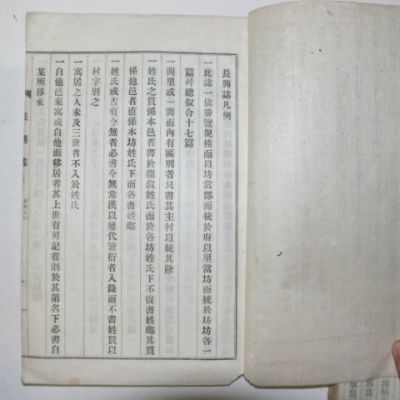 長興誌凡例
一此誌一依勝覽規模而以坊當郡而統於府以里當坊而統於坊坊各一
篇幷總叙合十七篇
一閭里或一閭而內有區別者只書其主村以統其餘
一姓氏之貫係本邑者書於總叙姓氏而於各坊姓氏下不復書姓鄕其貫
係他邑者直係本坊姓氏下而各書姓鄕
一姓氏或古有今無者必書今無常漢以屢代蕃衍者入錄而不書姓貫以
村字別之
一寓居之人未及三世者不入於姓氏
一自他邑來寓或自他面移居者其上世有可記者則於其第名下必書自
某所移來